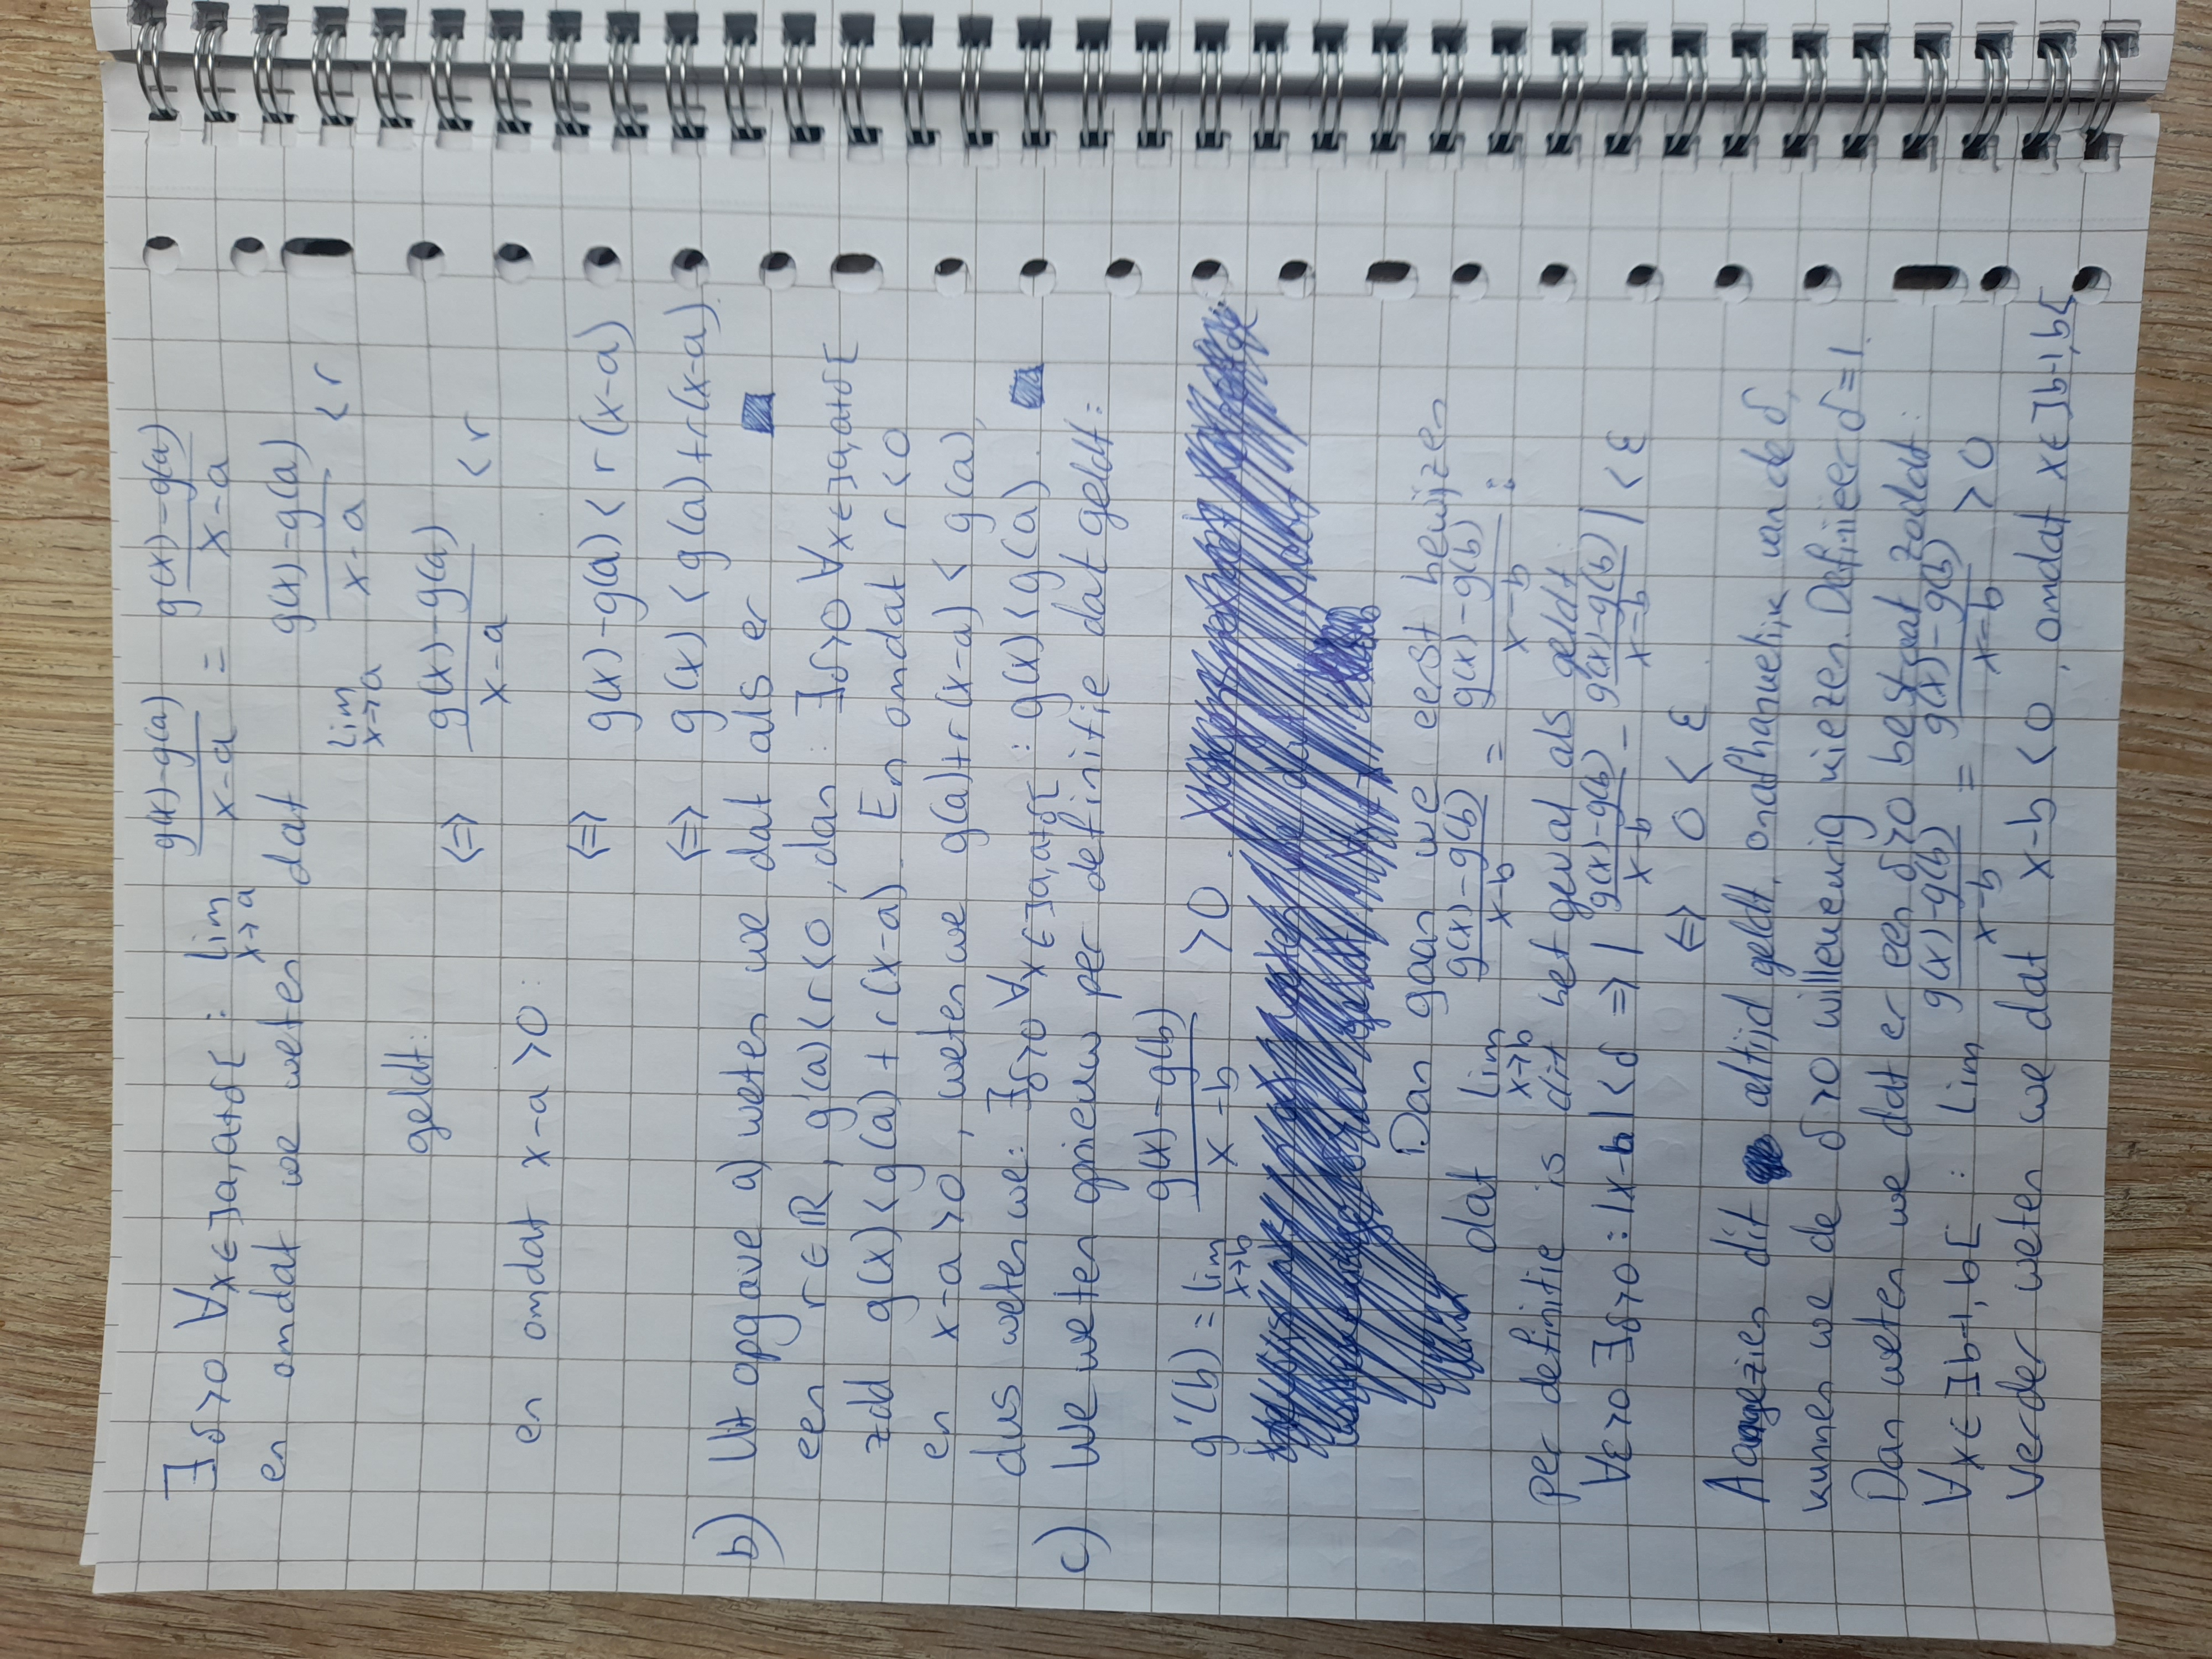 ∃δ>0 ∀x∈]a,a+δ[ : lim x→a (g(x)-g(a))/(x-a) = (g(x)-g(a))/(x-a)
en omdat we weten dat lim x→a (g(x)-g(a))/(x-a) < r
geldt: <=> (g(x)-g(a))/(x-a) < r
en omdat x-a>0:
<=> g(x)-g(a) < r(x-a)
<=> g(x) < g(a)+r(x-a).
b) Uit opgave a) weten we dat als er
een r∈ℝ, g'(a)<r<0, dan: ∃δ>0 ∀x∈]a,a+δ[
zdd g(x)<g(a)+r(x-a). En omdat r<0
en x-a>0, weten we g(a)+r(x-a) < g(a),
dus weten we: ∃δ>0 ∀x∈]a,a+δ[ : g(x)<g(a).
c) We weten opnieuw per definitie dat geldt:
g'(b) = lim x→b (g(x)-g(b))/(x-b) > 0.
Dan gaan we eerst bewijzen
dat lim x→b (g(x)-g(b))/(x-b) = (g(x)-g(b))/(x-b) :
Per definitie is dit het geval als geldt
∀ε>0 ∃δ>0 : |x-b|<δ => | (g(x)-g(b))/(x-b) - (g(x)-g(b))/(x-b) | < ε
<=> 0 < ε
Aangezien dit altijd geldt, onafhankelijk van de δ,
kunnen we de δ>0 willekeurig kiezen. Definieer δ=1.
Dan weten we dat er een δ>0 bestaat zodat:
∀x∈]b-1,b[ : lim x→b (g(x)-g(b))/(x-b) = (g(x)-g(b))/(x-b) > 0
Verder weten we dat x-b<0, omdat x∈]b-1,b[